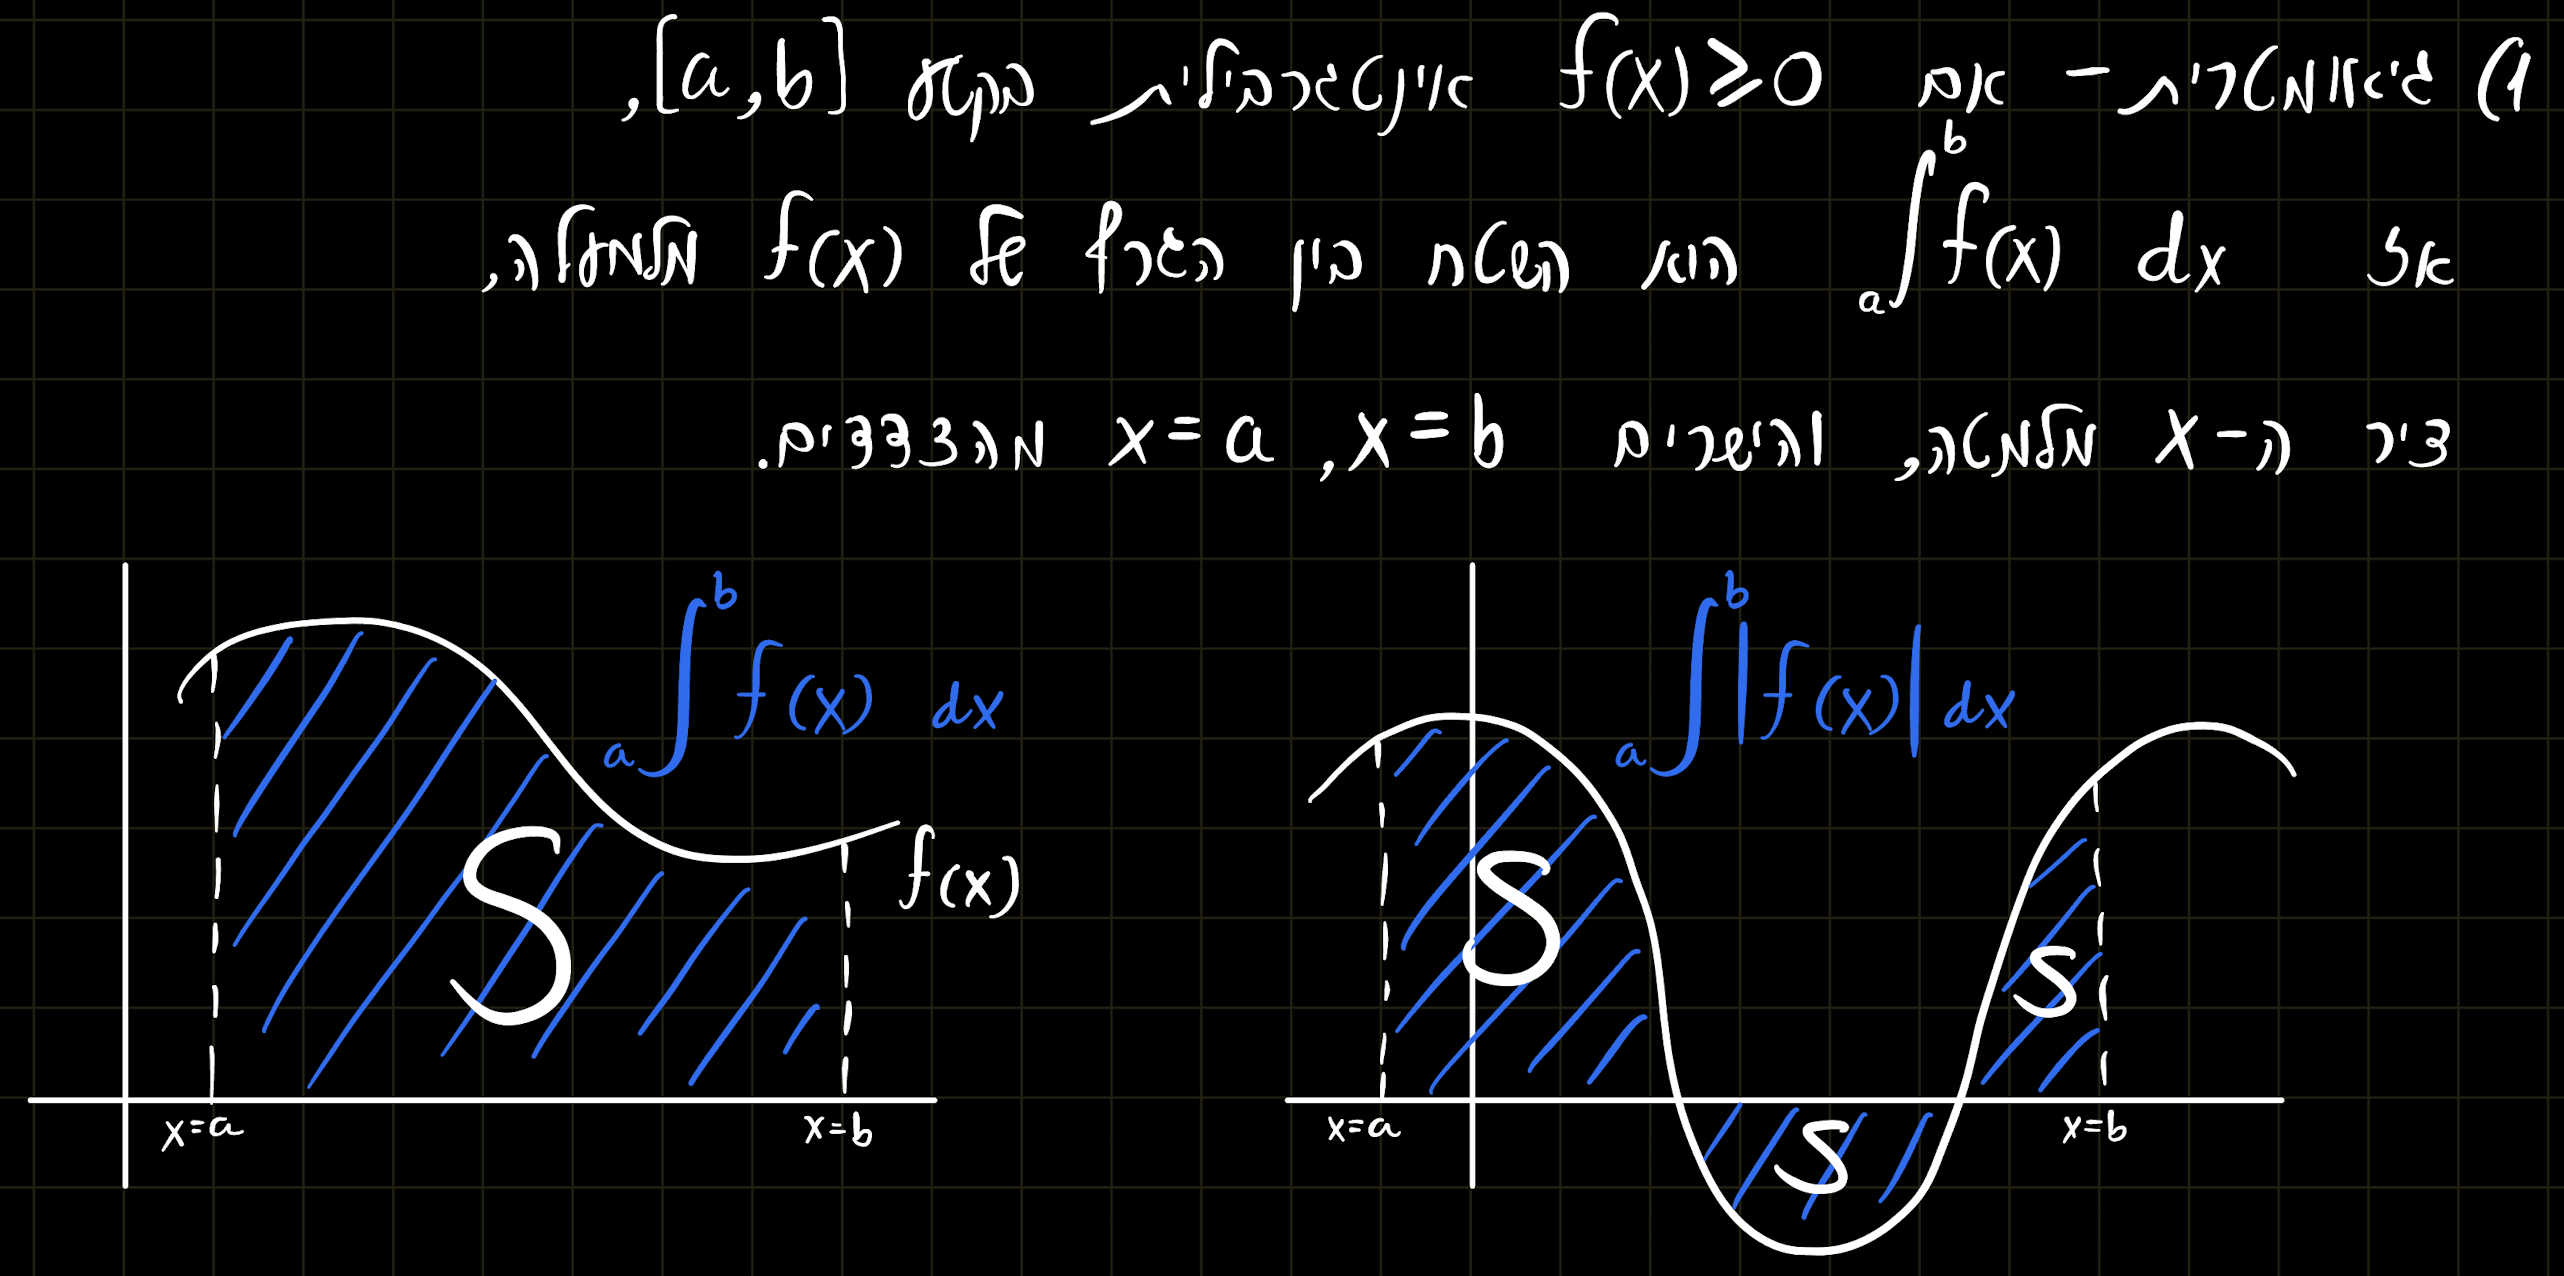 1) גיאומטרית - אם f(x)≥0 אינטגרבילית בקטע [a,b],
אז ∫_a^b f(x) dx הוא השטח בין הגרף של f(x) מלמעלה,
ציר ה-x מלמטה, והישרים x=a, x=b מהצדדים.
∫_a^b f(x) dx
S
f(x)
x=a
x=b
∫_a^b |f(x)| dx
S
S
S
x=a
x=b